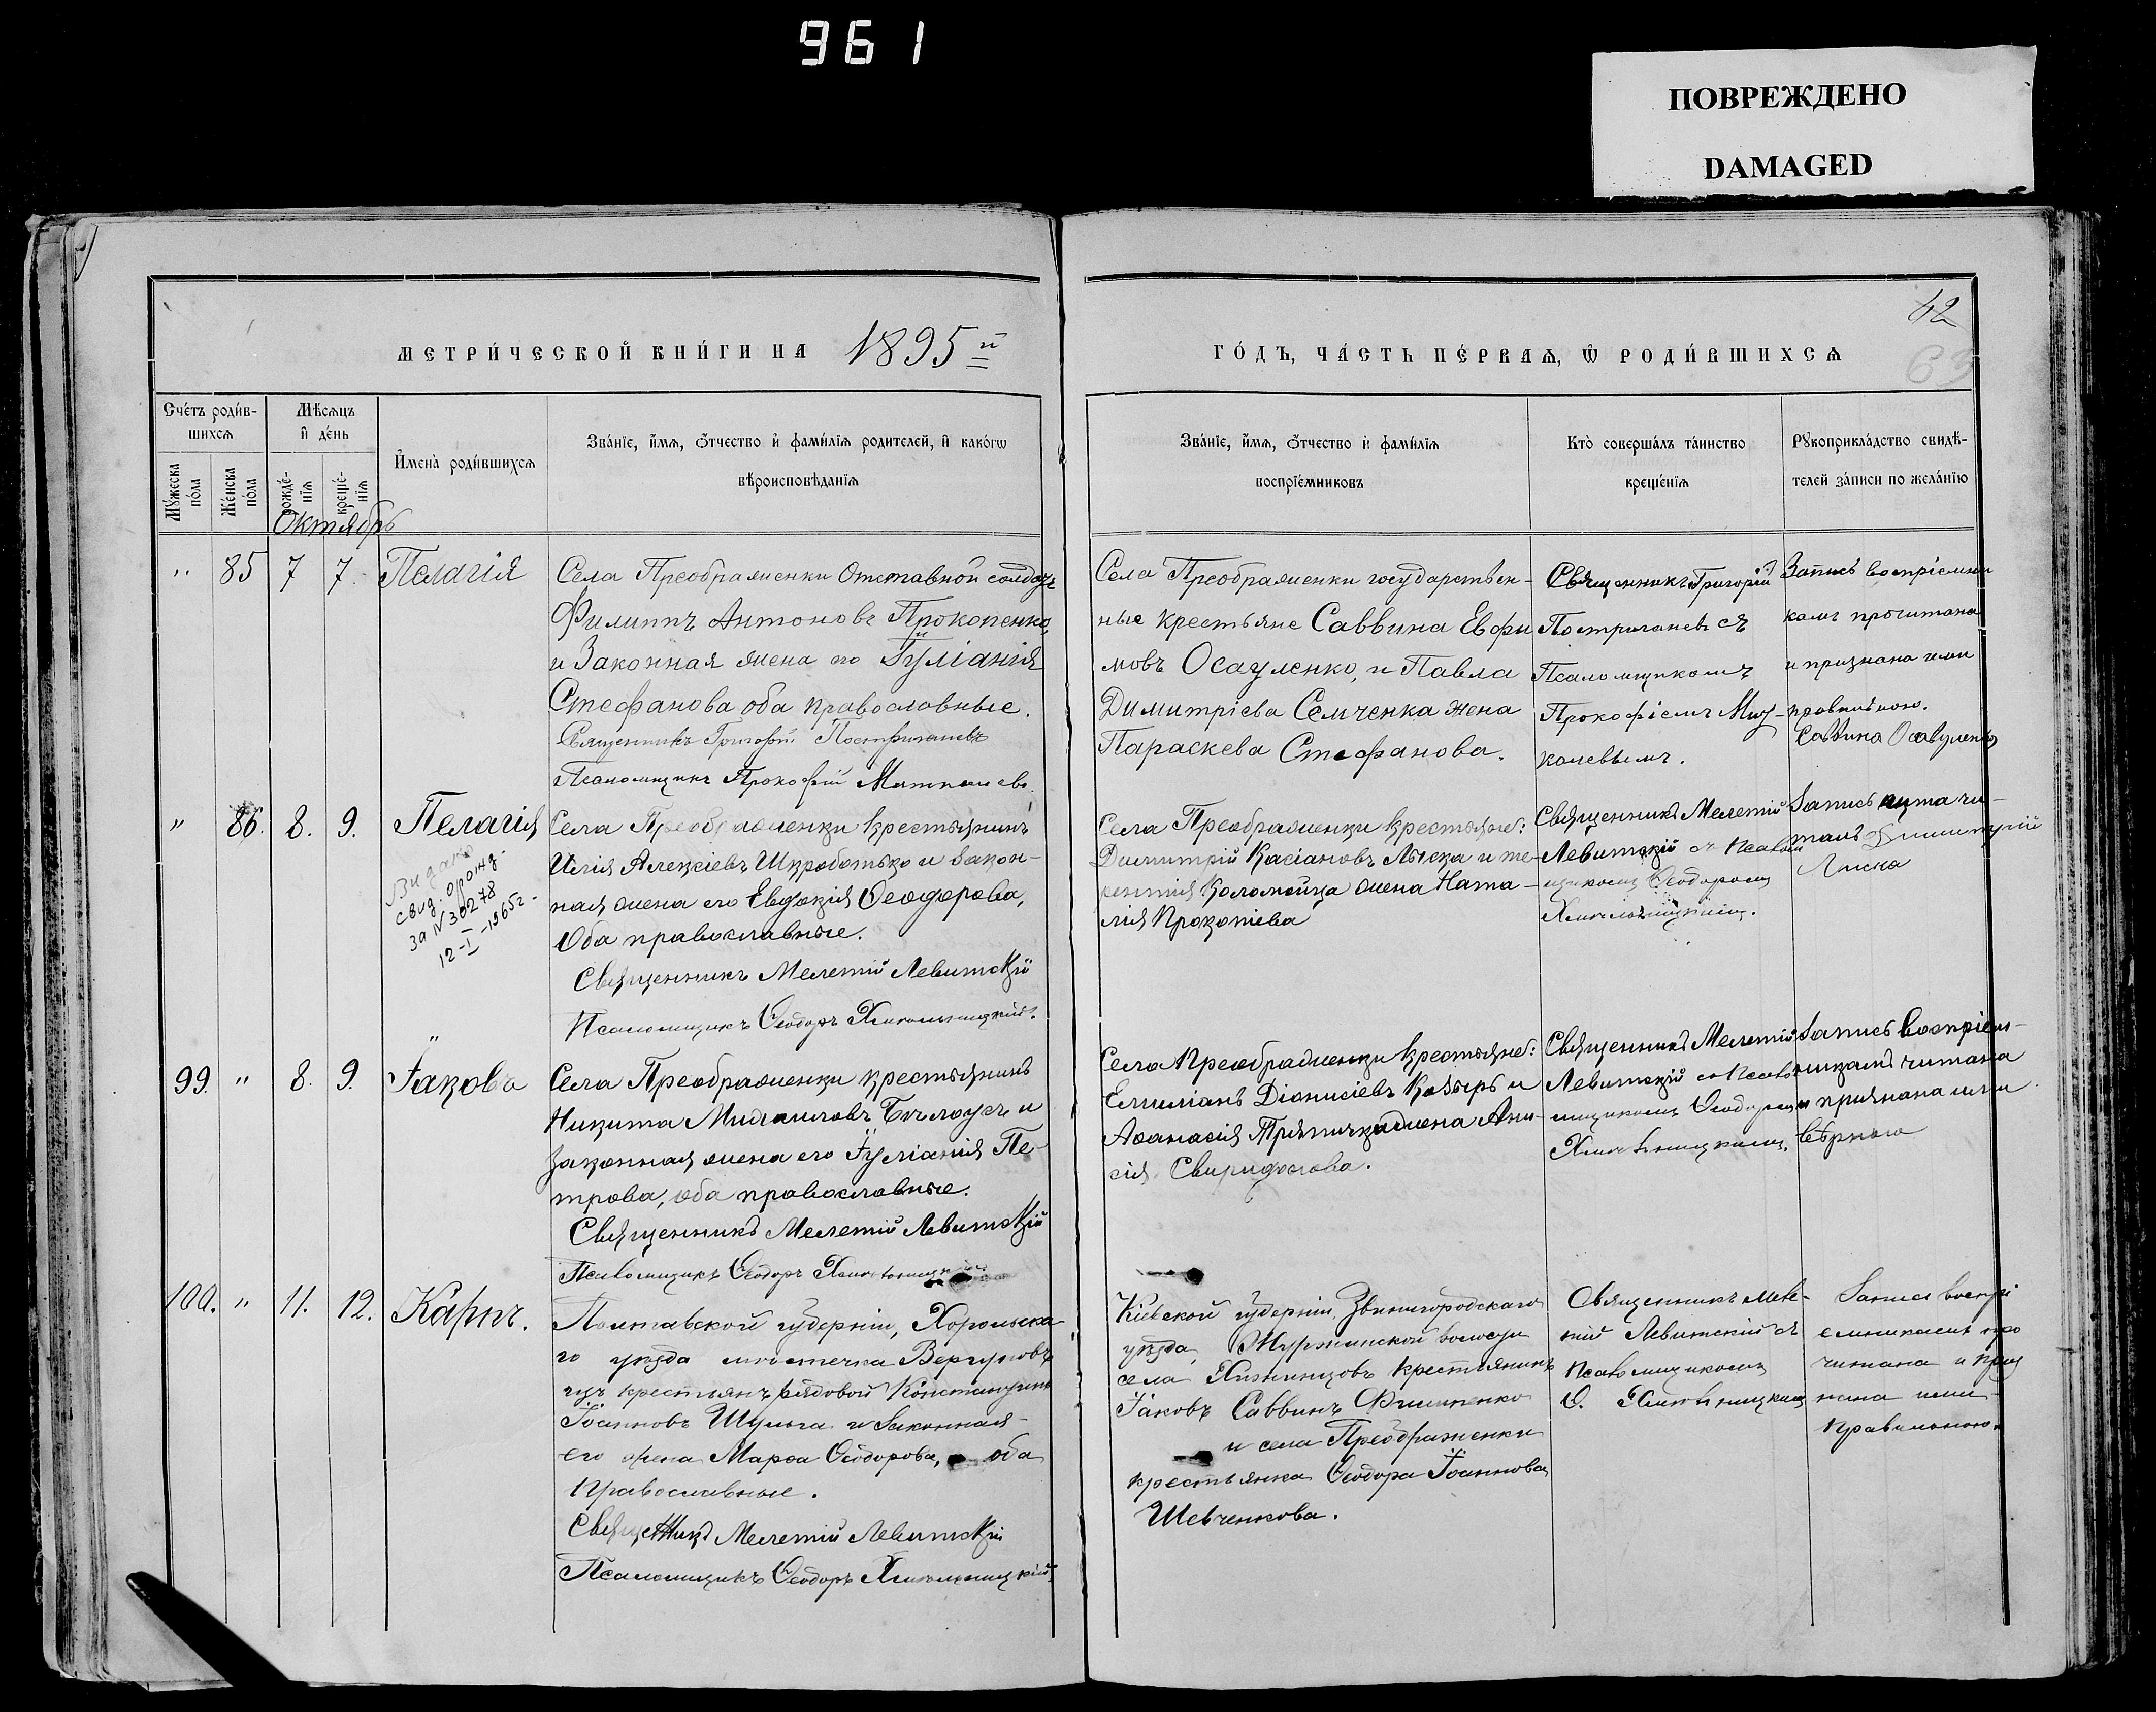 961
ПОВРЕЖДЕНО
DAMAGED
МЕТРИ́ЧЕСКОЙ КНИ́ГИ НА 1895й
ГО́ДЪ, ЧА́СТЬ ПЕ́РВАѦ, Ѡ РОДИ́ВШИХСѦ
42
63
Сче́тъ роди́в-
шихсѧ
Мѣсѧцъ
и҆ де́нь
И҆мена̀ роди́вшихсѧ
Зва́нїе, и҆́мѧ, ѻ҆́тчество и҆ фами́лїѧ родителей, и҆ како́гѡ
вѣроисповѣданїѧ
Мꙋ́жеска
по́ла
Же́нска
по́ла
рожде́-
нїѧ
креще́-
нїѧ
Зва́нїе, и҆́мѧ, ѻ҆́тчество и҆ фами́лїѧ
воспрїе́мниковъ
Кто̀ соверша́лъ та́инство
креще́нїѧ
Рꙋкоприкла́дство свидѣ́-
телей за́писи по жела́нїю
Октябрь
" 85 7 7. Пелагія
Села Преображенки Отставной солдатъ
Филиппъ Антоновъ Прокопенко,
и Законная жена его Іуліанія
Стефанова оба православные.
Священникъ Григорій Постригачевъ
Псаломщикъ Прокофій
Села Преображенки государствен-
ные крестьяне Саввина Евфи
мовъ Осауленко, и Павла
Димитріева Семченка жена
Параскева Стефанова.
Священникъ Григорій
Постригачевъ съ
Псаломщикомъ
Прокофіемъ
Запись воспріемни
камъ прочитана
и признана ими
правильною.
Саввина Осавуленко
" 86. 8. 9. Пелагія
Видано
свид. о рожд.
за N 30278
12-I-1965г.
Села Преображенки крестьянинъ
Илія Алексіевъ Шкроботько и закон-
ная жена его Евдокія Ѳеодорова,
Оба православные.
Священникъ Мелетій Левитскій
Псаломщикъ Ѳеодоръ Хмельницкій.
Села Преображенки крестьяне:
Димитрій Касіановъ Лыска и Те-
рентія Коломойца жена Ната-
лія Прокопіева
Священникъ Мелетій
Левитскій съ Псалом
щикомъ Ѳеодоромъ
Хмельницкимъ.
Запись
Димитрій
Лиска
99. " 8. 9. Іаковъ
Села Преображенки крестьянинъ
Никита Михаиловъ Бѣлоусъ и
законная жена его Іуліанія Пе-
трова, оба православные.
Священникъ Мелетій Левитскій
Псаломщикъ Ѳеодоръ Хмельницкій
Села Преображенки крестьяне:
Емиліанъ Діонисіевъ Козырь и
Аѳанасія Тряпичка жена Ани-
сія Свиридонова.
Священникъ Мелетій
Левитскій съ Псалом
щикомъ Ѳеодоромъ
Хмельницкимъ.
Запись воспріем-
никамъ читана
и признана ими
вѣрною
100. " 11. 12. Карпъ.
Полтавской губерніи, Хорольска-
го уѣзда мѣстечка
изъ крестьянъ рядовой Константинъ
Іоанновъ Шульга и Законная
его жена Марѳа Ѳеодорова, оба
Православные.
Священникъ Мелетій Левитскій
Псаломщикъ Ѳеодоръ Хмельницкій.
Кіевской губерніи, Звенигородскаго
уѣзда, волости
села крестьянинъ
Іаковъ Саввинъ Филипенко
и села Преображенки
крестьянка Ѳеодора Іоаннова
Шевченкова.
Священникъ Меле-
тій Левитскій съ
Псаломщикомъ
Ѳ. Хмельницкимъ
Запись воспрі
емникамъ про
читана и приз
нана ими
правильною.